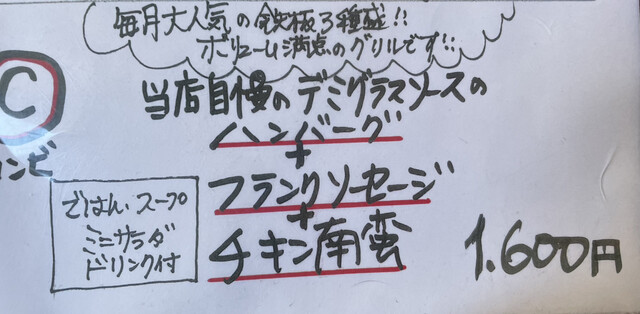 毎月大人気の鉄板3種盛!!
ボリューム満点のグリルです!!
C
当店自慢のデミグラスソースの
ハンバーグ
+
フランクソーセージ
+
チキン南蛮
ンビ
ごはん、スープ
ミニサラダ
ドリンク付
1.600円